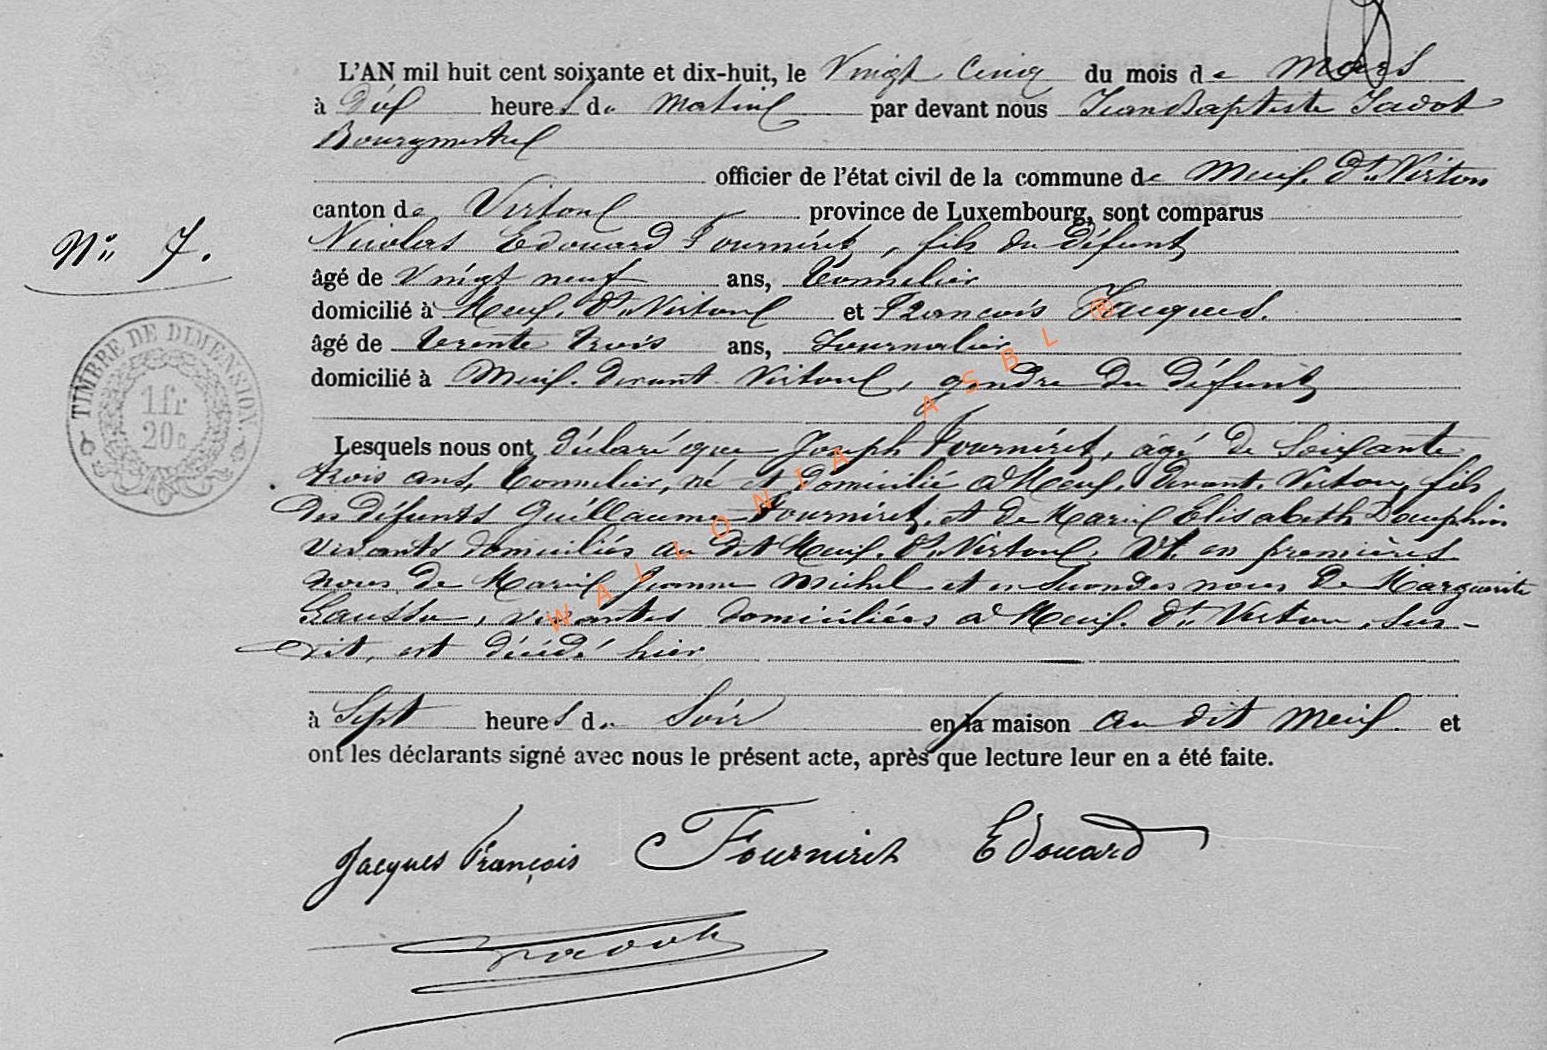 L'AN mil huit cent soixante et dix-huit, le Vingt Cinq du mois de Mars
à dix heures du Matin par devant nous Jean Baptiste Jadot
Bourgmestre
officier de l'état civil de la commune de Meix-Dt-Virton
canton de Virton province de Luxembourg, sont comparus
Nicolas Edouard Fourniret, fils du défunt
Nº 7.
âgé de vingt neuf ans, Tonnelier
domicilié à Meix-Dt-Virton et François Jacques.
âgé de trente trois ans, Journalier
domicilié à Meix-devant-Virton, gendre du défunt
TIMBRE DE DIMENSION
1fr
20c
Lesquels nous ont déclaré que Joseph Fourniret, âgé de Soixante
trois ans, Tonnelier, né et domicilié à Meix-devant-Virton, fils
des défunts Guillaume Fourniret, et de Marie Elisabeth Dauphin
vivants domiciliés au dit Meix-Dt-Virton, Vf. en premières
noces de Marie Jeanne Michel et en secondes noces de Marguerite
vivantes domiciliées à Meix-Dt-Virton, sus-
dit, est décédé hier
à Sept heures du Soir en sa maison au dit Meix et
ont les déclarants signé avec nous le présent acte, après que lecture leur en a été faite.
Jacques François Fourniret Edouard
Jadot
WALLONIA ASBL ®